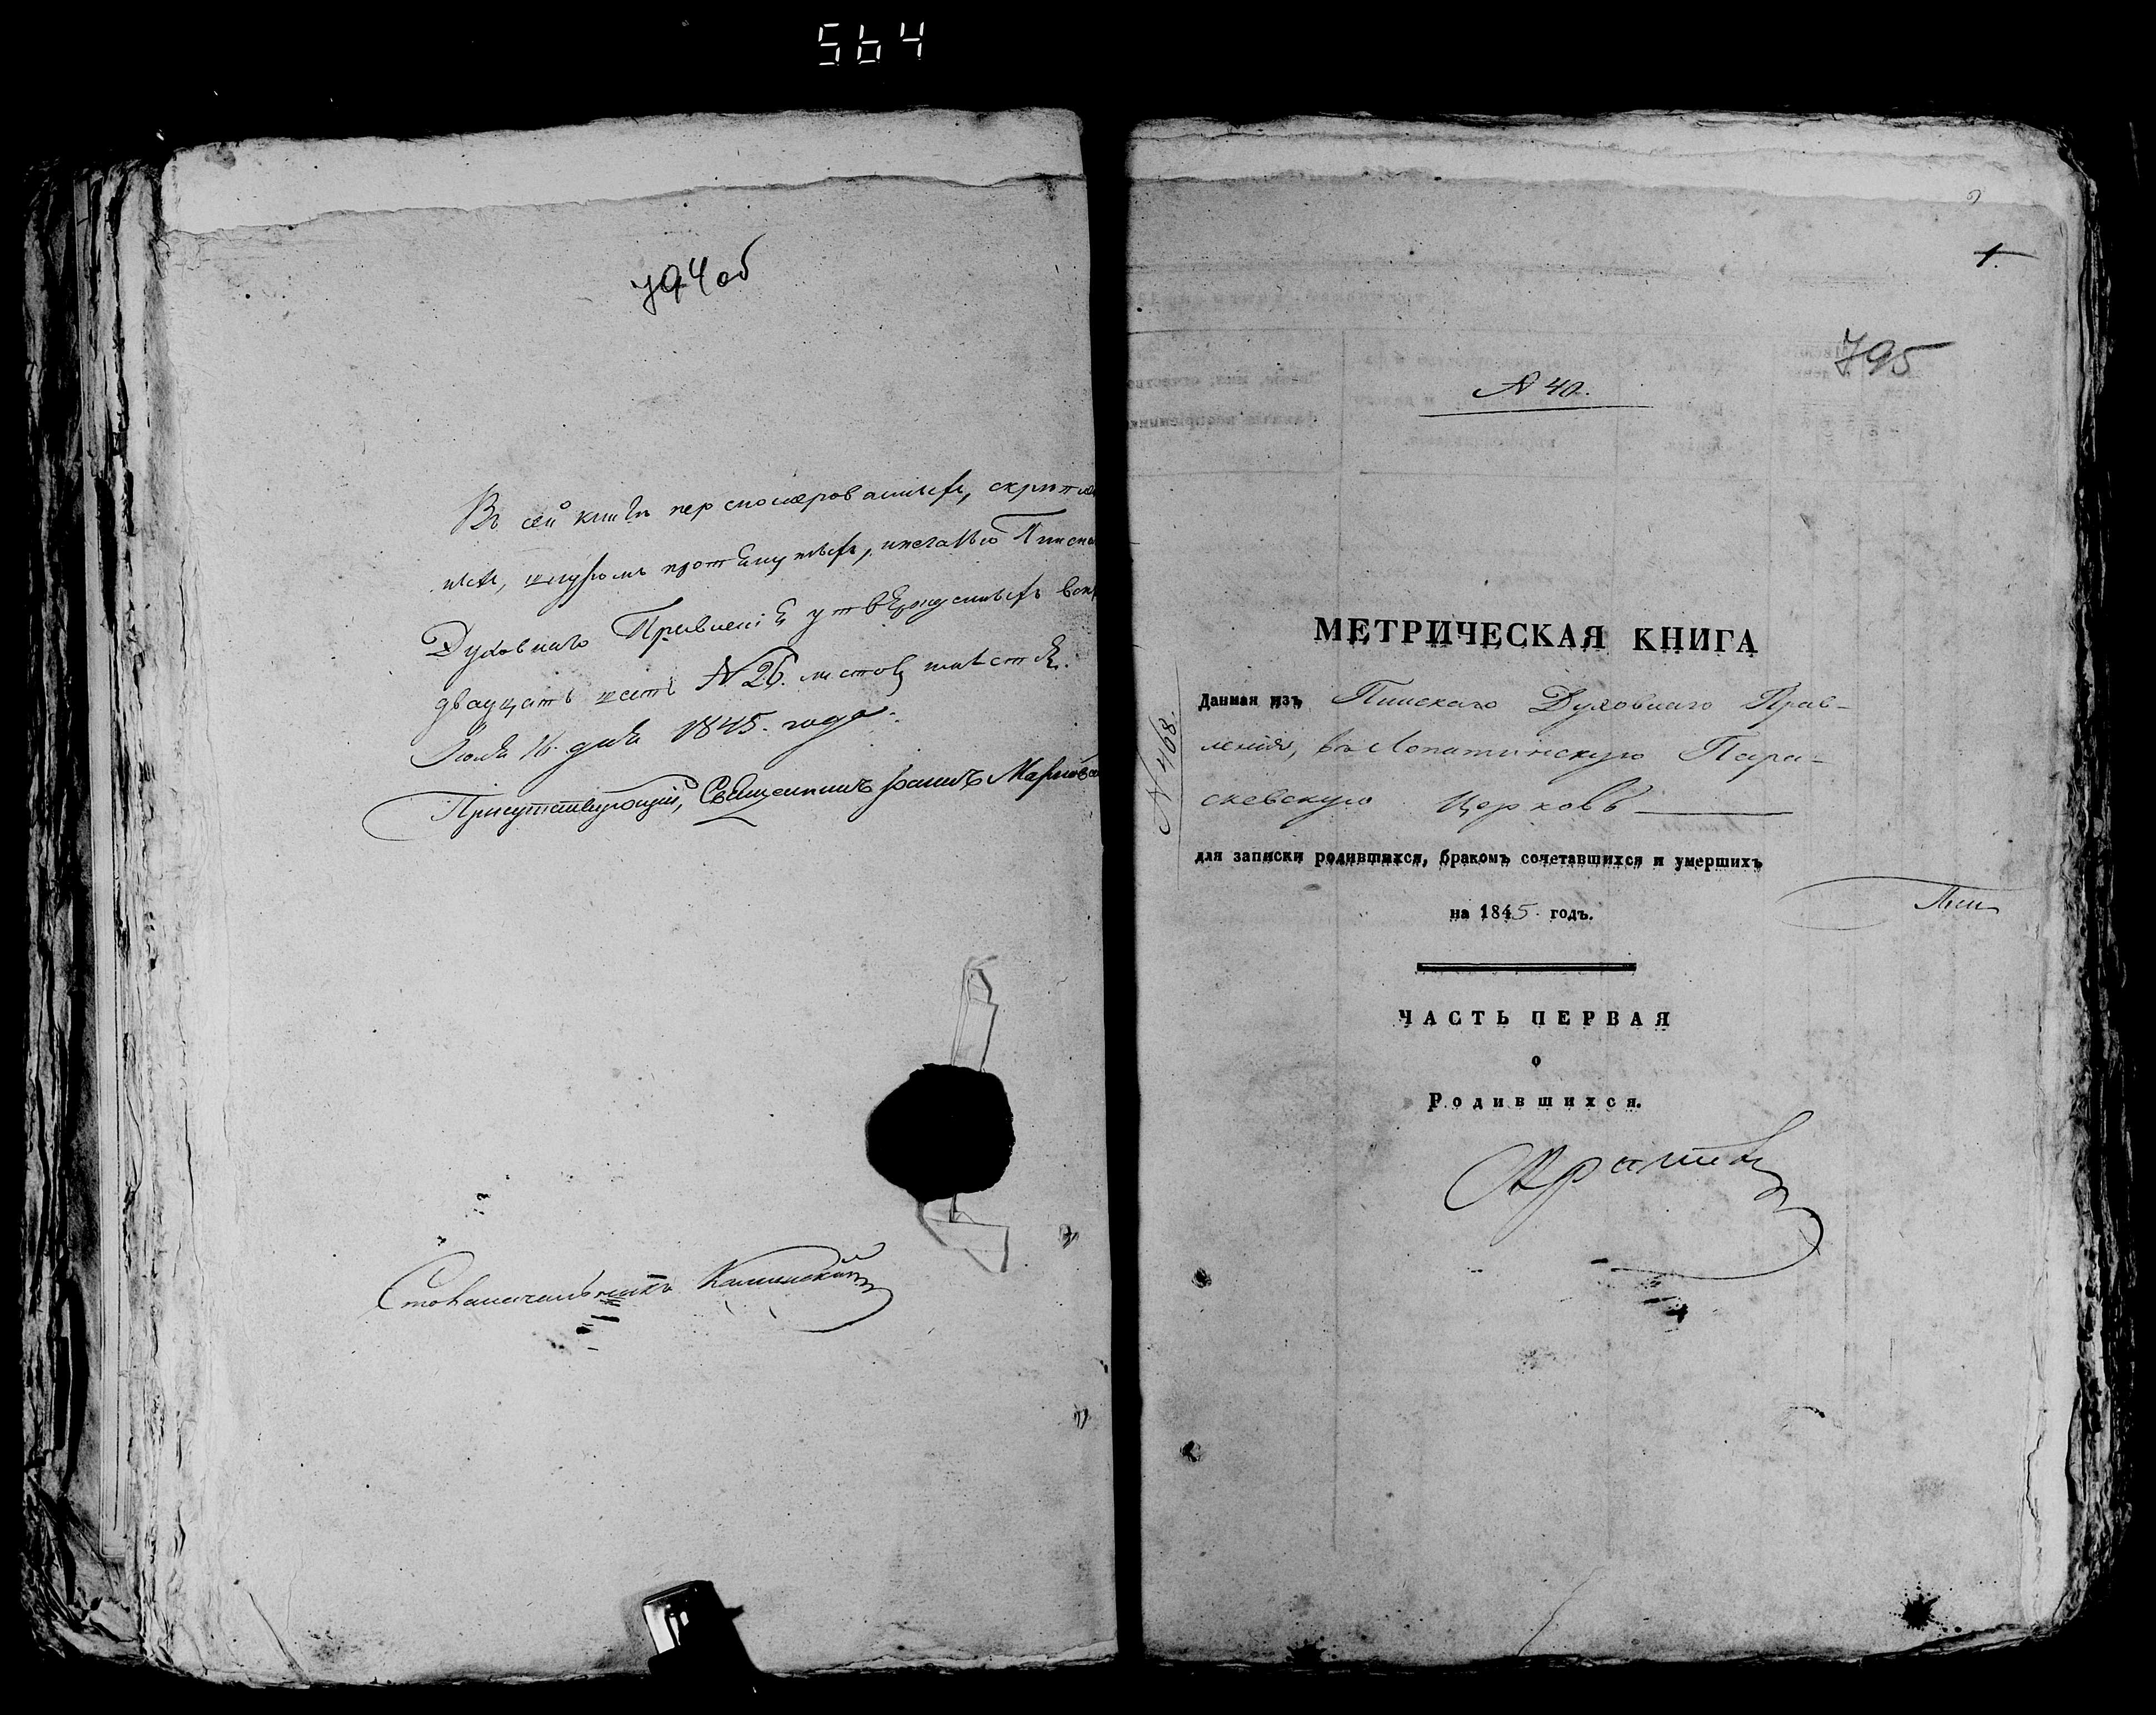 564
794 об
Въ сей книгѣ перенумерованныхъ, скрѣплен
ныхъ, шнуромъ протянутыхъ, печатью Пинска
Духовнаго Правленія утвержденныхъ
двадцать шесть N 26. листовъ
16. дня 1845. года.
Присутствующій, Священникъ Іоаннъ
Столоначальникъ Калинскій
1.
795
N 40.
N 468.
МЕТРИЧЕСКАЯ КНИГА
Данная изъ Пинскаго Духовнаго Прав-
ленія, въ Лопатинскую Пара-
скевскую Церковь
для записки родившихся, бракомъ сочетавшихся и умершихъ
на 1845 годъ.
Пин
ЧАСТЬ ПЕРВАЯ
о
Родившихся.